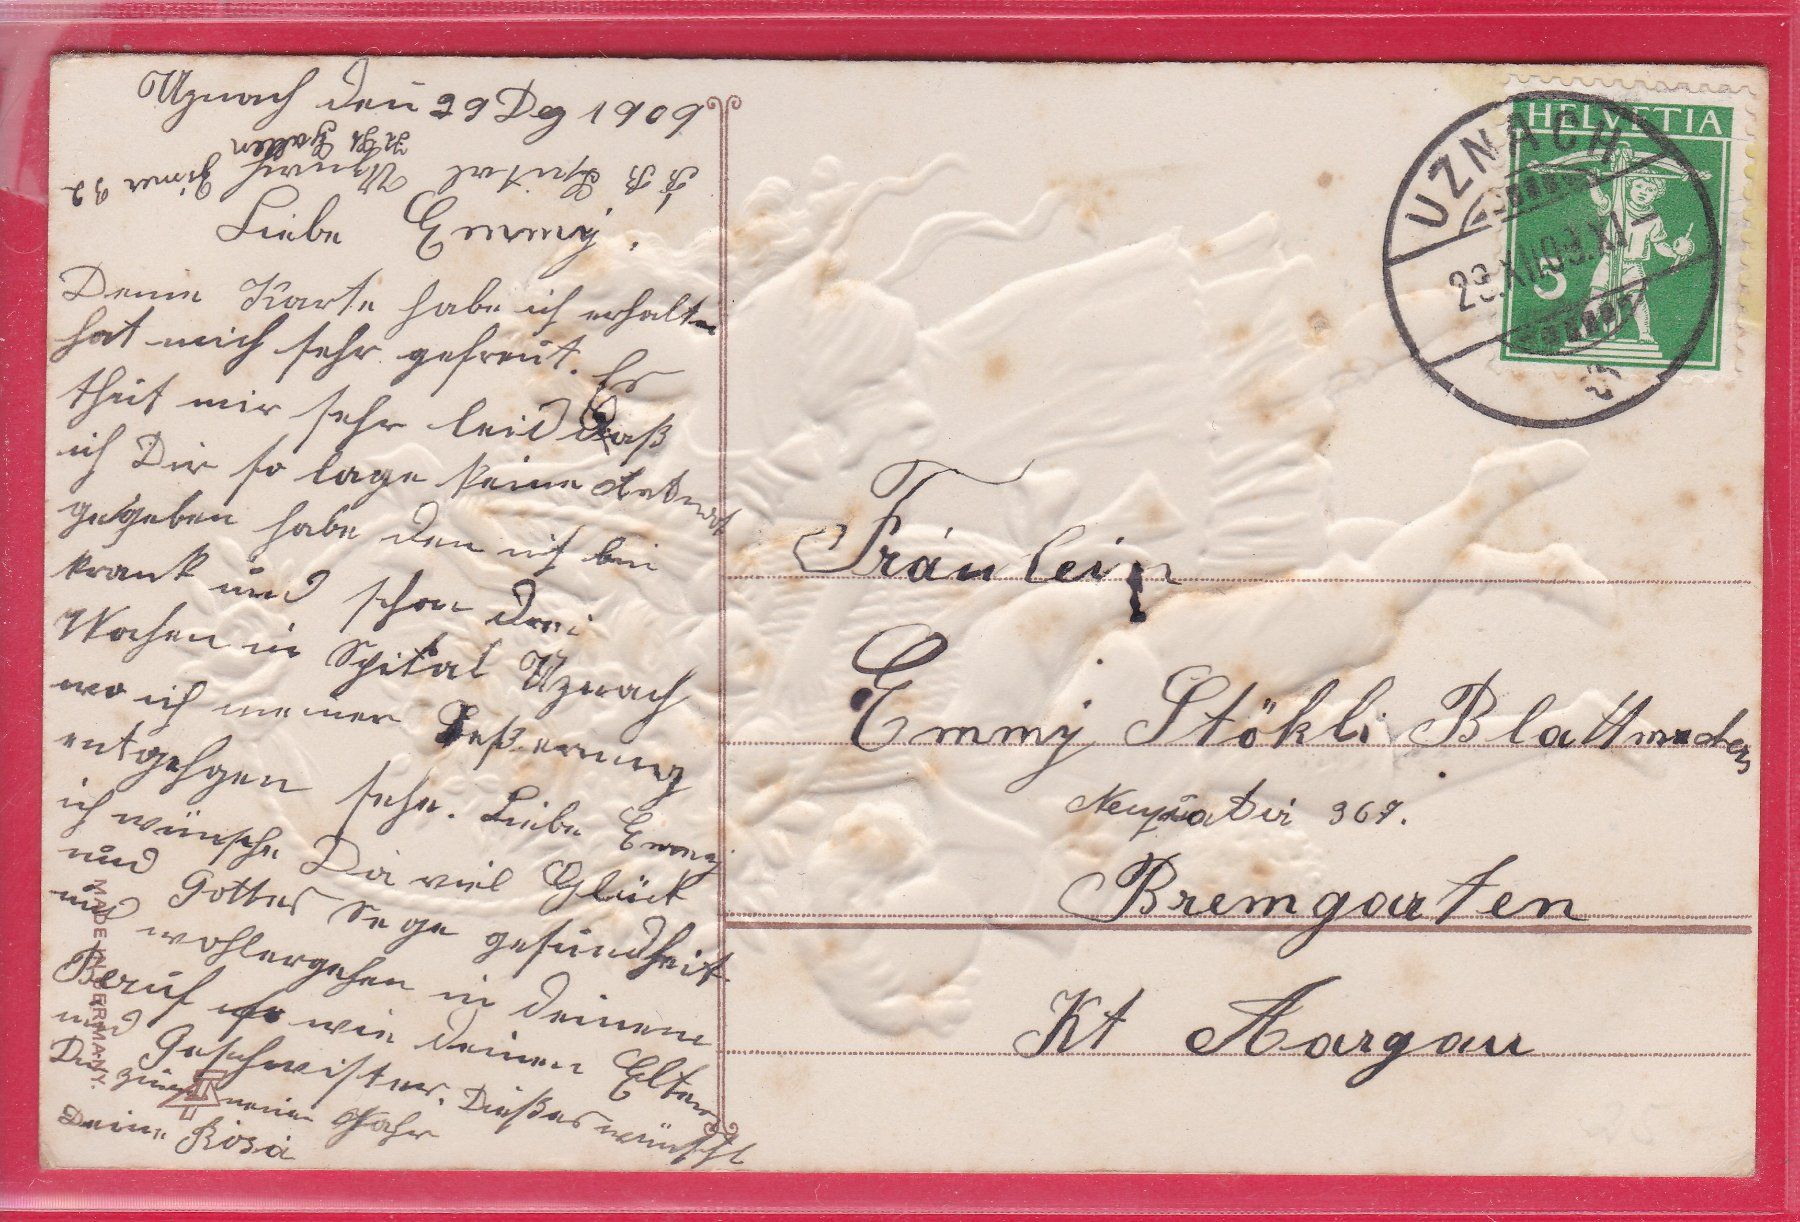 Uznach den 29 Dez 1909
Zimer 32
Kt St Gallen
Liebe Emmy,
Deine Karte habe ich erhalten
hat mich sehr gefreut. Es
thut mir sehr leid daß
ich Dir so lage keine Antwort
gegeben habe den ich bin
krank und schon drei
Wochen in Spital Uznach
wo ich meiner Beßerung
entgehgen sehe. Liebe Emmy
ich wünsche Dir viel Glück
und Gottes Sege gesundheit
und wohlergehen in deinem
Beruf so wie deinen Eltern
und Geschwister. Dießes wünscht
Dir zum neuen Jahr
Deine Rosa
MADE IN GERMANY.
HELVETIA
5
UZNACH
Fräulein
Emmy Stökli
367.
Bremgarten
Kt Aargau